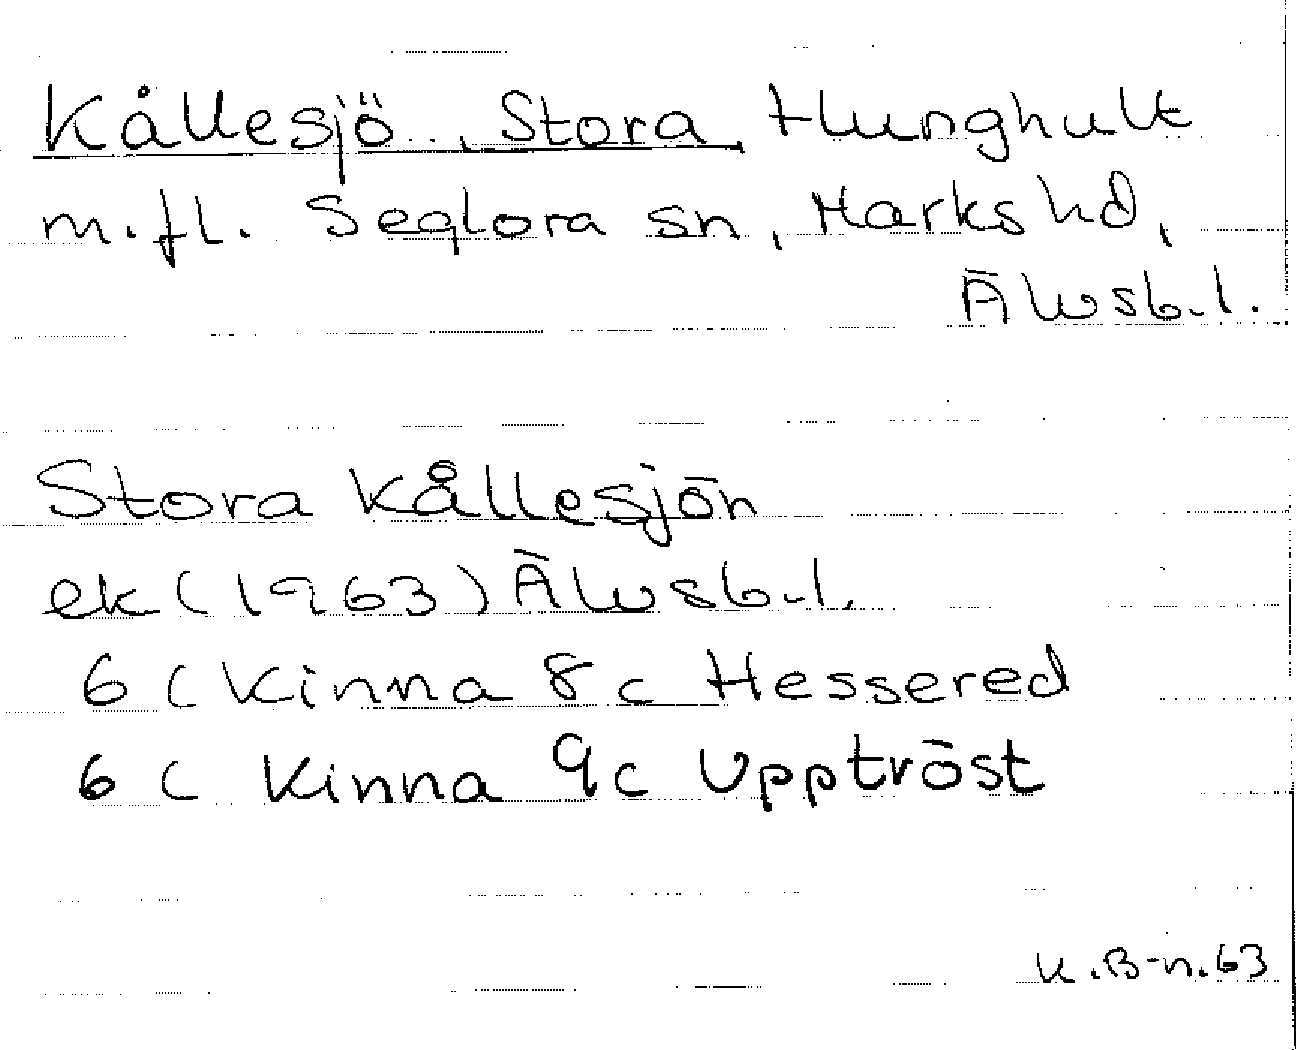 Kållesjö, Stora, Hunghult
m.fl. Seglora sn, Marks hd,
Älvsb.l.
Stora Kållesjön
ek (1963) Älvsb.l.
6 C Kinna 8c Hessered
6 C Kinna 9c Upptröst
K.B-n.63